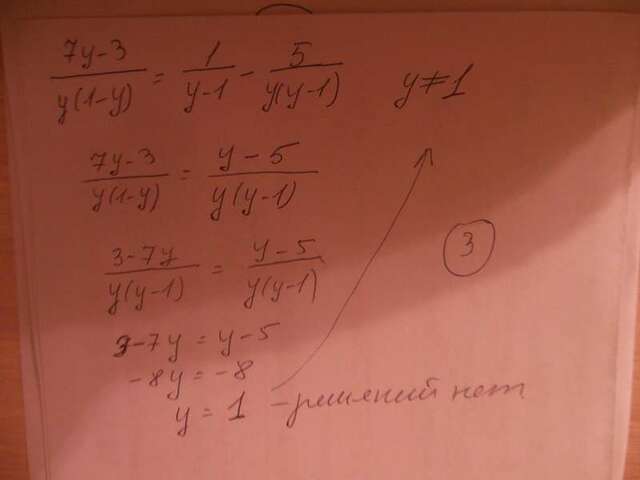 (7y-3)/(y(1-y)) = 1/(y-1) - 5/(y(y-1)) y≠1
(7y-3)/(y(1-y)) = (y-5)/(y(y-1))
3
(3-7y)/(y(y-1)) = (y-5)/(y(y-1))
3-7y = y-5
-8y = -8
y = 1 - решений нет